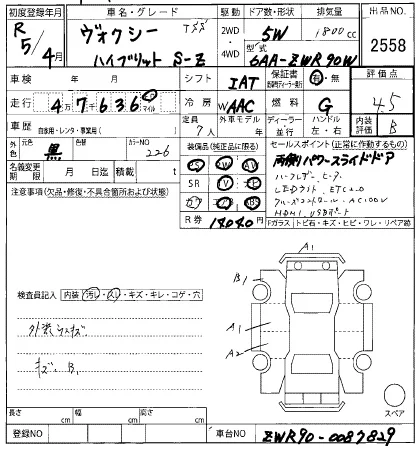 初度登録年月 車名・グレード 駆動 ドア数・形状 排気量 出品NO.
R 5年4月 ヴォクシー 2WD 5W 1800cc
ハイブリット S-Z 4WD 型式 6AA-ZWR90W 2558
車検 年 月 シフト IAT 保証書 有・無 評価点
走行 4万7636 km マイル 冷房 WAAC 燃料 G 4.5
車歴 自家用・レンタ・事業用( ) 定員 7人 外車モデル 年 ディーラー 並行 ハンドル 左・右 内装 B
外色 元色 黒 色 カラーNO 226 装備品(純正品に限る) セールスポイント(正常に作動するもの)
名義変更期限 月 日迄 積載 t 両側パワースライドドア
注意事項(欠品・修復・不具合箇所および状態) SR
LEDライト ETC2.0
クルーズコントロール AC100V
HDMI, USBポート
R券 14040円 Fガラス トビ石・キズ・ヒビ・ワレ・リペア跡
A1
B1
検査員記入 内装 汚レ・スレ・キズ・キレ・コゲ・穴
A1
A2
キズ. B1
スペア
長さ cm 幅 cm 高さ cm
登録NO 車台NO ZWR90-0087829